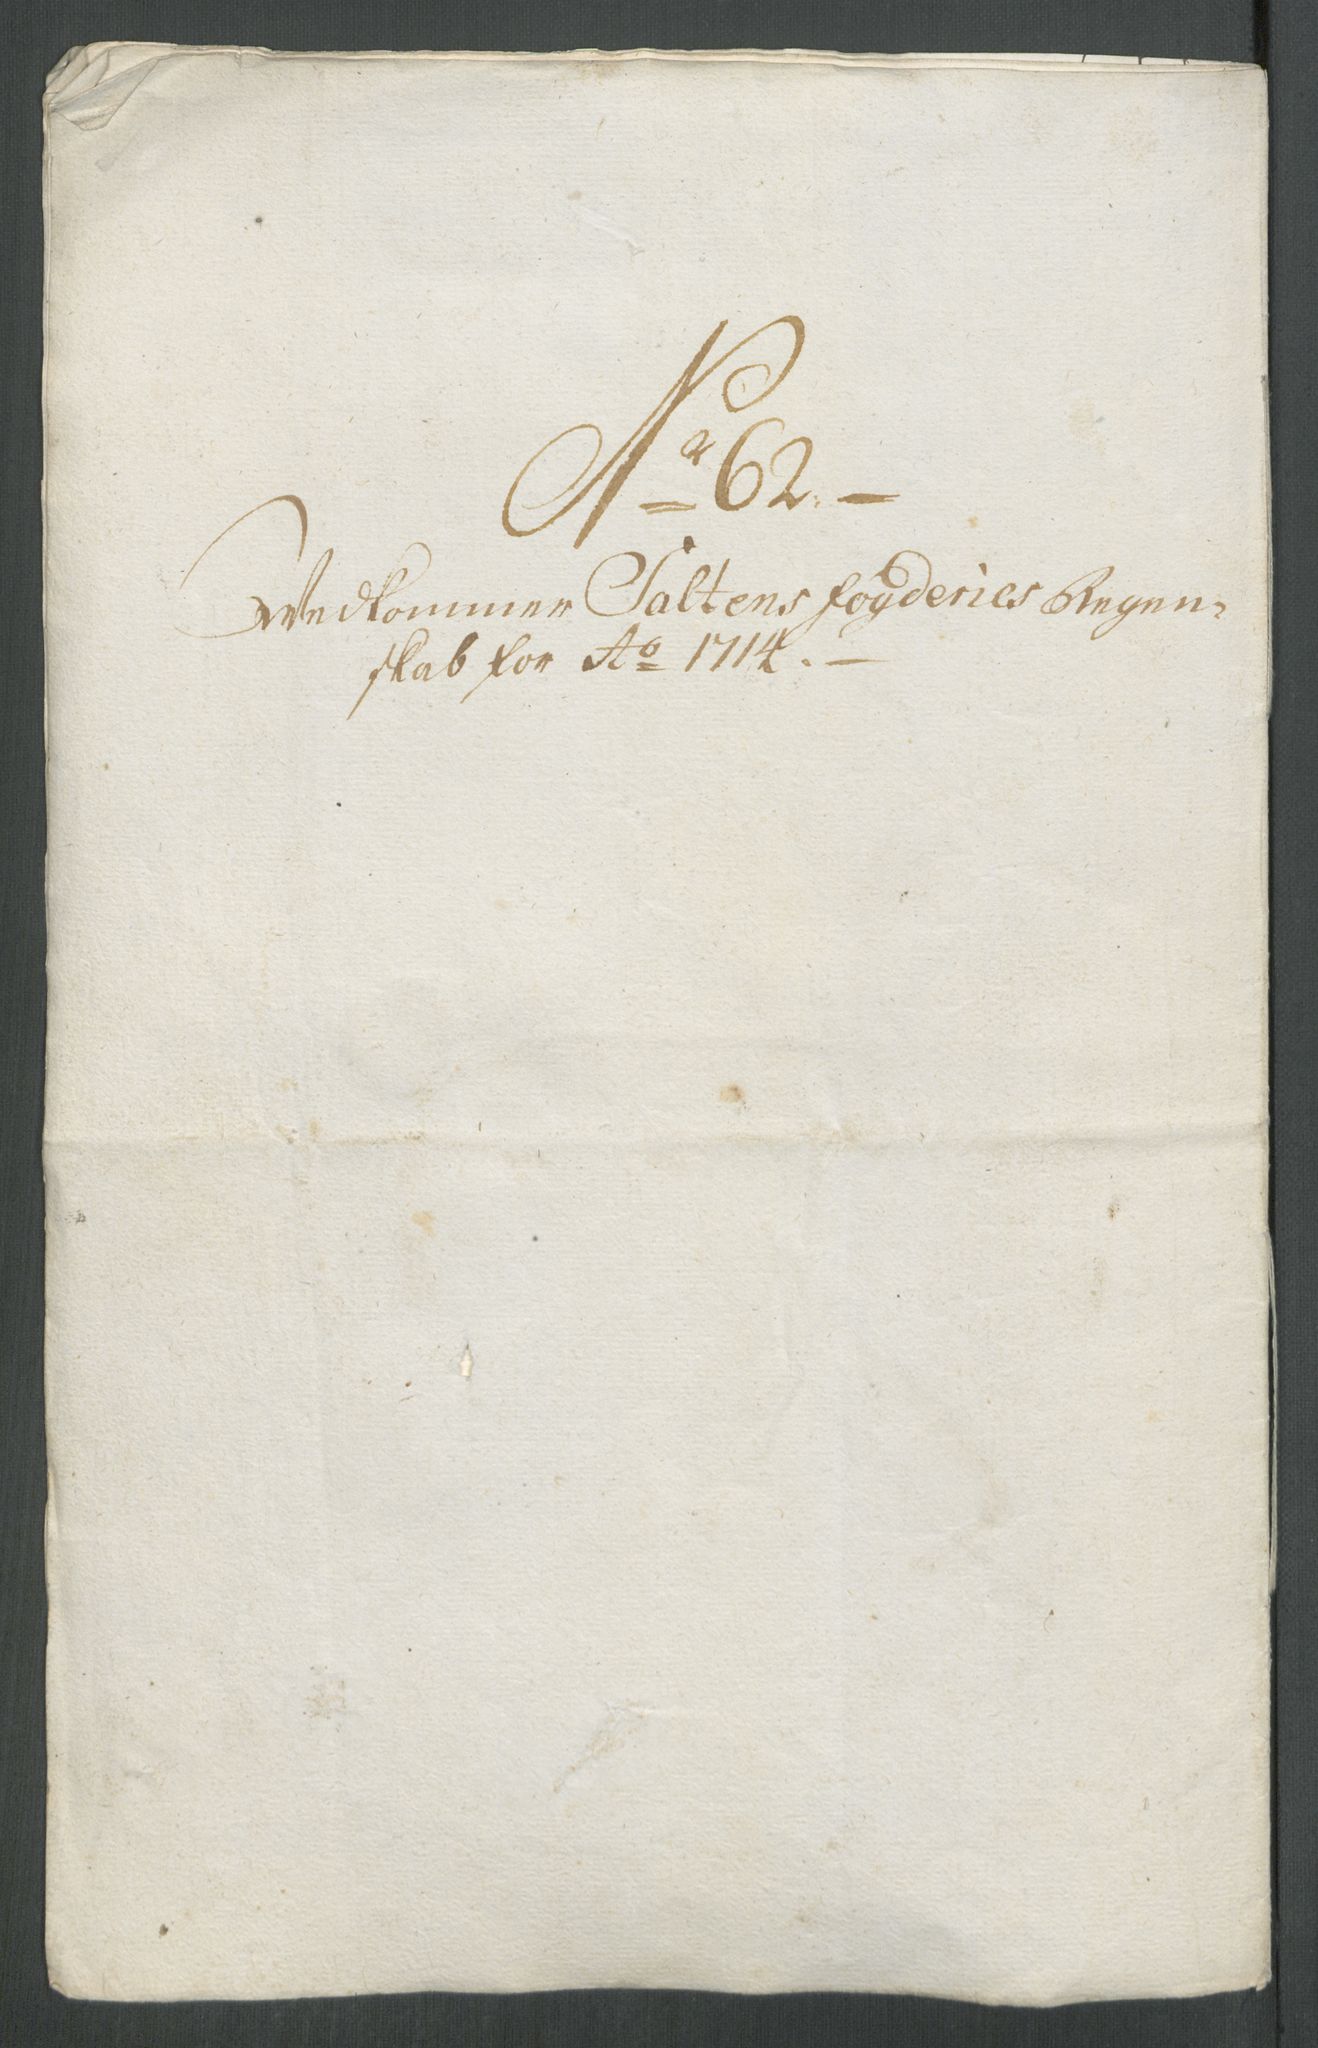 Nr 62. —
Wedkommer Saltens fogderies Regen=
skab for Ao 1714. —